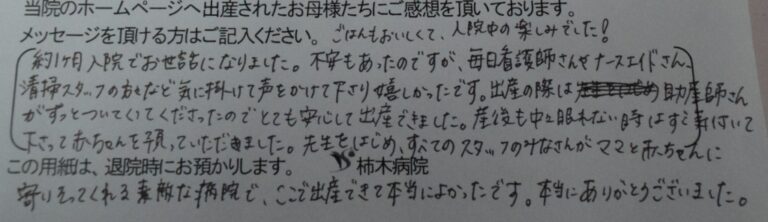 当院のホームページへ出産されたお母様たちにご感想を頂いております。
メッセージを頂ける方はご記入ください。ごはんもおいしくて、入院中の楽しみでした!
約1ヶ月入院でお世話になりました。不安もあったのですが、毎日看護師さんやナースエイドさん、
清掃スタッフの方など気に掛けて声をかけて下さり嬉しかったです。出産の際は 助産師さん
がずっとついてくださったのでとても安心して出産できました。産後も中々眠れない時はすぐ気付いて
下さって赤ちゃんを預っていただきました。先生をはじめ、すべてのスタッフのみなさんがママと赤ちゃんに
この用紙は、退院時にお預かりします。 柿木病院
寄りそってくれる素敵な病院で、ここで出産できて本当によかったです。本当にありがとうございました。